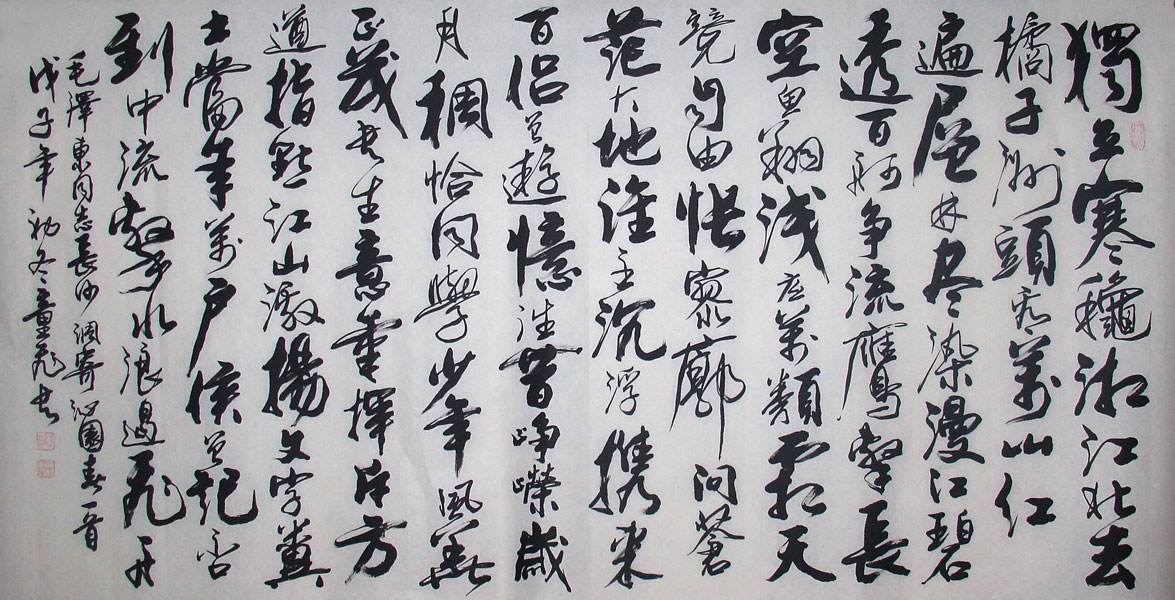 獨立寒龝湘江北去
橘子洲頭看萬山红
遍层林尽染漫江碧
透百舸争流鷹擊長
空魚翔浅底萬類霜天
競自由怅寥廓问蒼
茫大地谁主沉浮携来
百侣曾遊憶往昔峥嶸歲
月稠恰同學少年風華
正茂书生意氣挥斥方
遒指點江山激揚文字糞
土當年萬户侯曾记否
到中流擊水浪遏飛舟
毛澤東同志長沙調寄沁園春一首
戊子年初冬童飛书